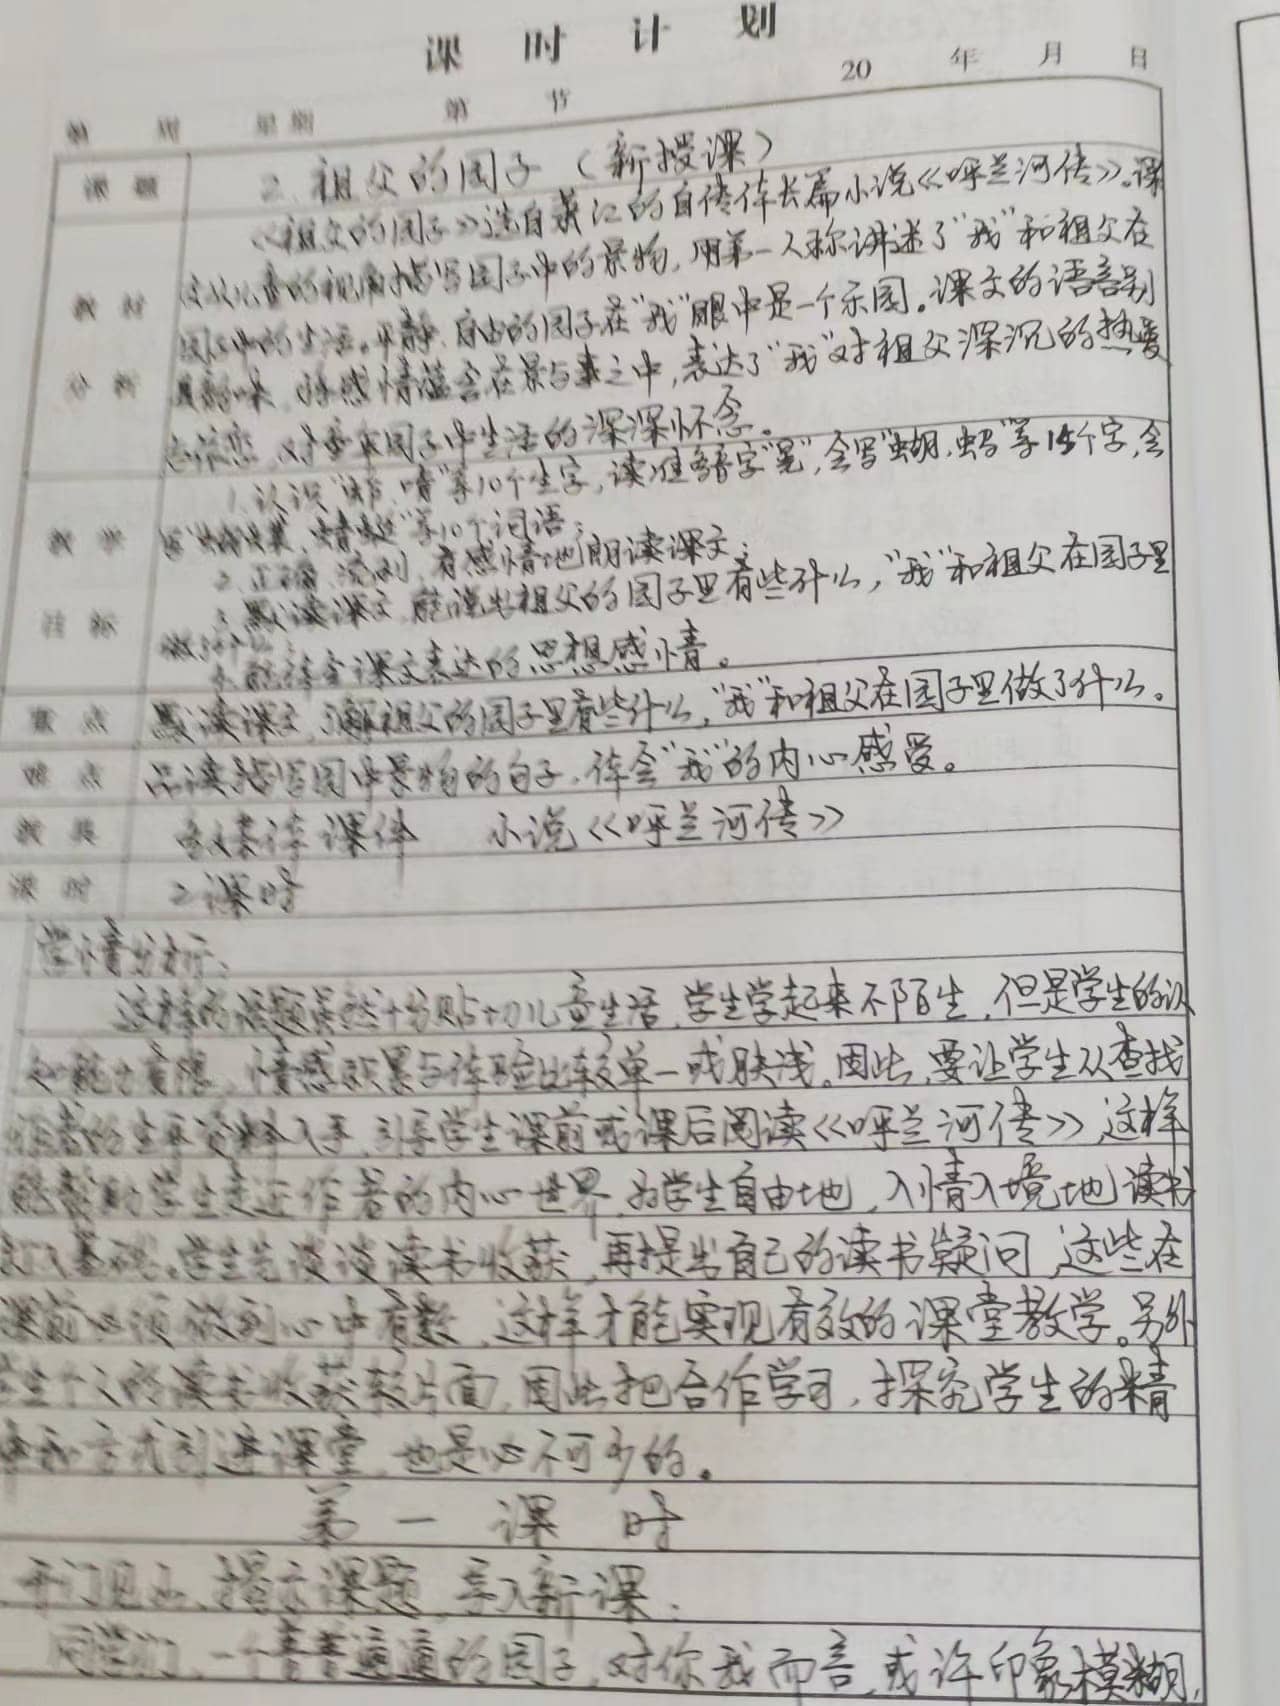 课 时 计 划
20 年 月 日
第 周 星期 第 节
课 题
2. 祖父的园子（新授课）
教 材
分 析
《祖父的园子》选自萧红的自传体长篇小说《呼兰河传》。课
文从儿童的视角描写园子中的景物，用第一人称讲述了“我”和祖父在
园子中的生活。平静、自由的园子在“我”眼中是一个乐园。课文的语言别
具韵味，将感情蕴含在景与事之中，表达了“我”对祖父深沉的热爱
与依恋，对童年园子中生活的深深怀念。
教 学
目 标
1. 认识“ 、啃”等10个生字，读准多音字“晃”，会写“蝴、蚂”等15个字，会
写“蚂蚱、蜻蜓”等10个词语；
2. 正确、流利、有感情地朗读课文；
3. 默读课文，能说出祖父的园子里有些什么，“我”和祖父在园子里
做了什么；
4. 能体会课文表达的思想感情。
重 点
默读课文，了解祖父的园子里有些什么，“我”和祖父在园子里做了什么。
难 点
品读描写园中景物的句子，体会“我”的内心感受。
教 具
多媒体课件 小说《呼兰河传》
课 时
2课时
学情分析：
这样的话题虽然十分贴切儿童生活，学生学起来不陌生，但是学生的认
知能力有限，情感积累与体验比较单一或肤浅。因此，要让学生从查找
作者的生平资料入手，引导学生课前或课后阅读《呼兰河传》，这样
能帮助学生走近作者的内心世界，为学生自由地，入情入境地读书
打下基础。学生先谈谈读书收获，再提出自己的读书疑问，这些在
课前必须做到心中有数，这样才能实现有效的课堂教学。另外
学生个人的读书收获较片面，因此把合作学习，探究学生的精
神和方式引进课堂，也是必不可少的。
第 一 课 时
开门见山，揭示课题，导入新课：
同学们，一个普普通通的园子，对你我而言，或许印象模糊，